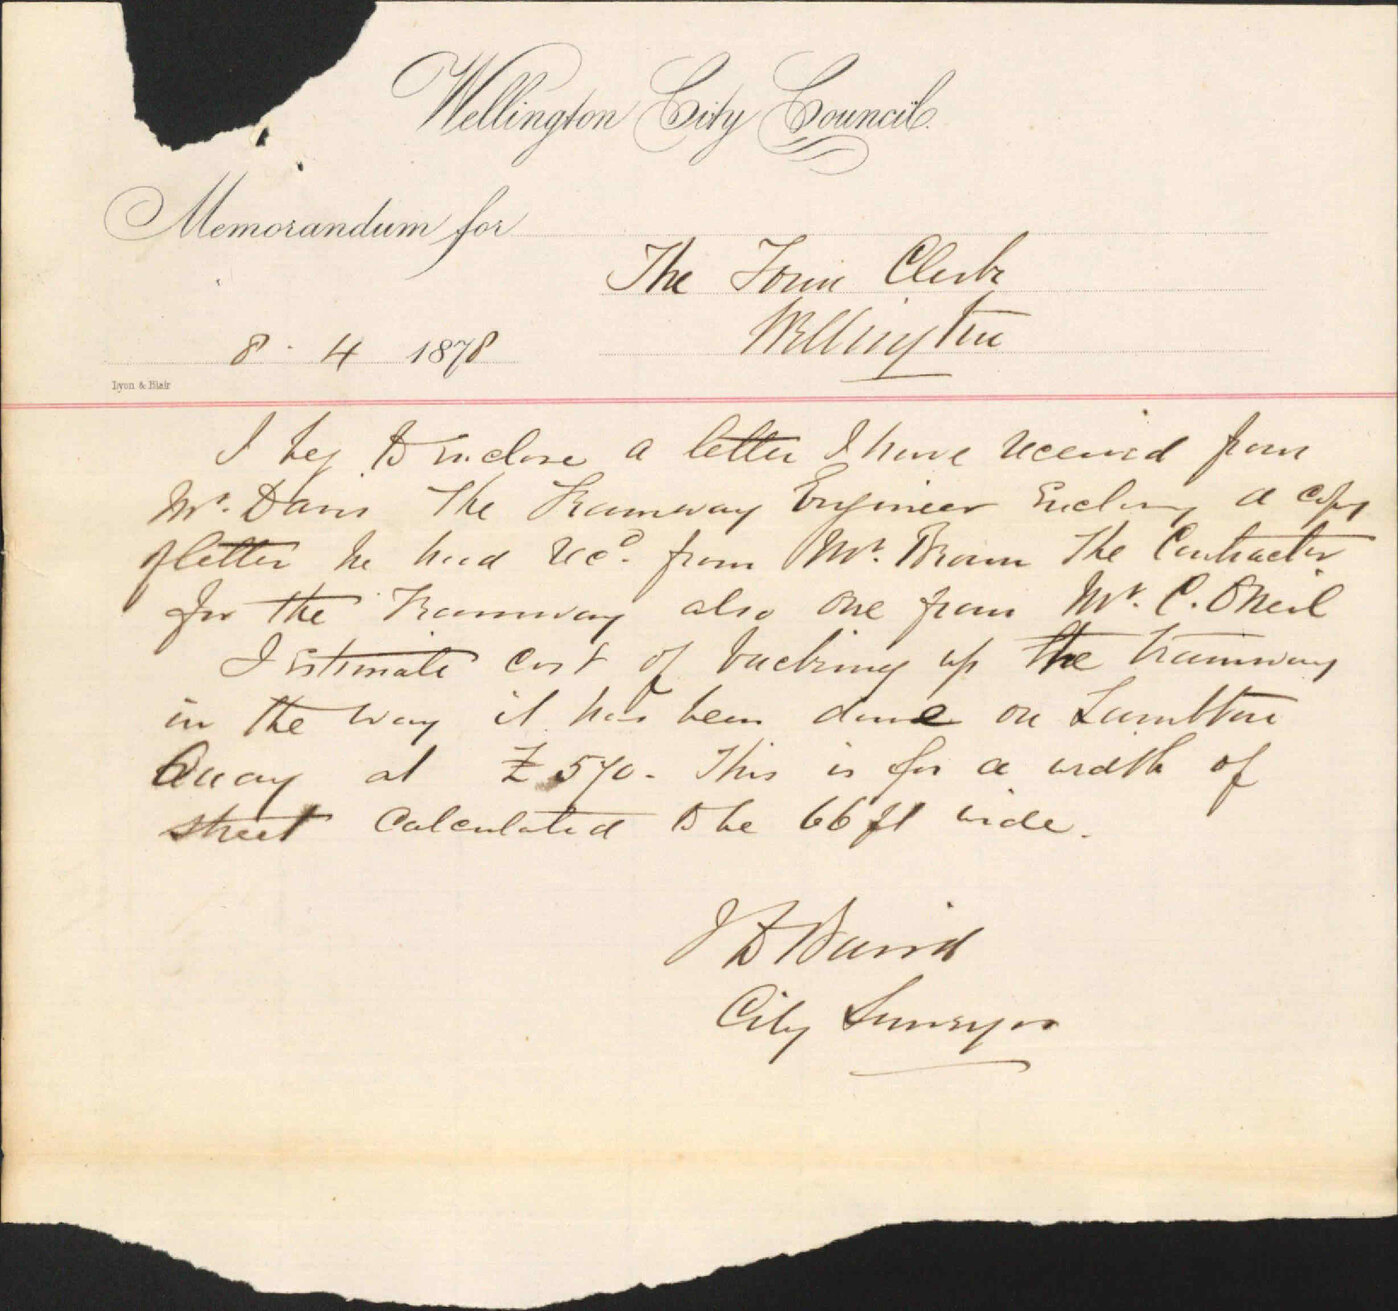 Wellington City Council.
Memorandum for
The Town Clerk
Wellington
8 . 4 1878
Lyon & Blair
I beg to enclose a letter I have received from
Mr. Davis The Tramway Engineer Enclosing a copy
of letter he had recd. from Mr. Brown The Contractor
for the Tramway also one from Mr. C. O'Neil
I Estimate cost of backing up the tramway
in the way it has been done on Lambton
Quay at £570. This is for a width of
street calculated to be 66 ft wide.
J D Baird
City Surveyor